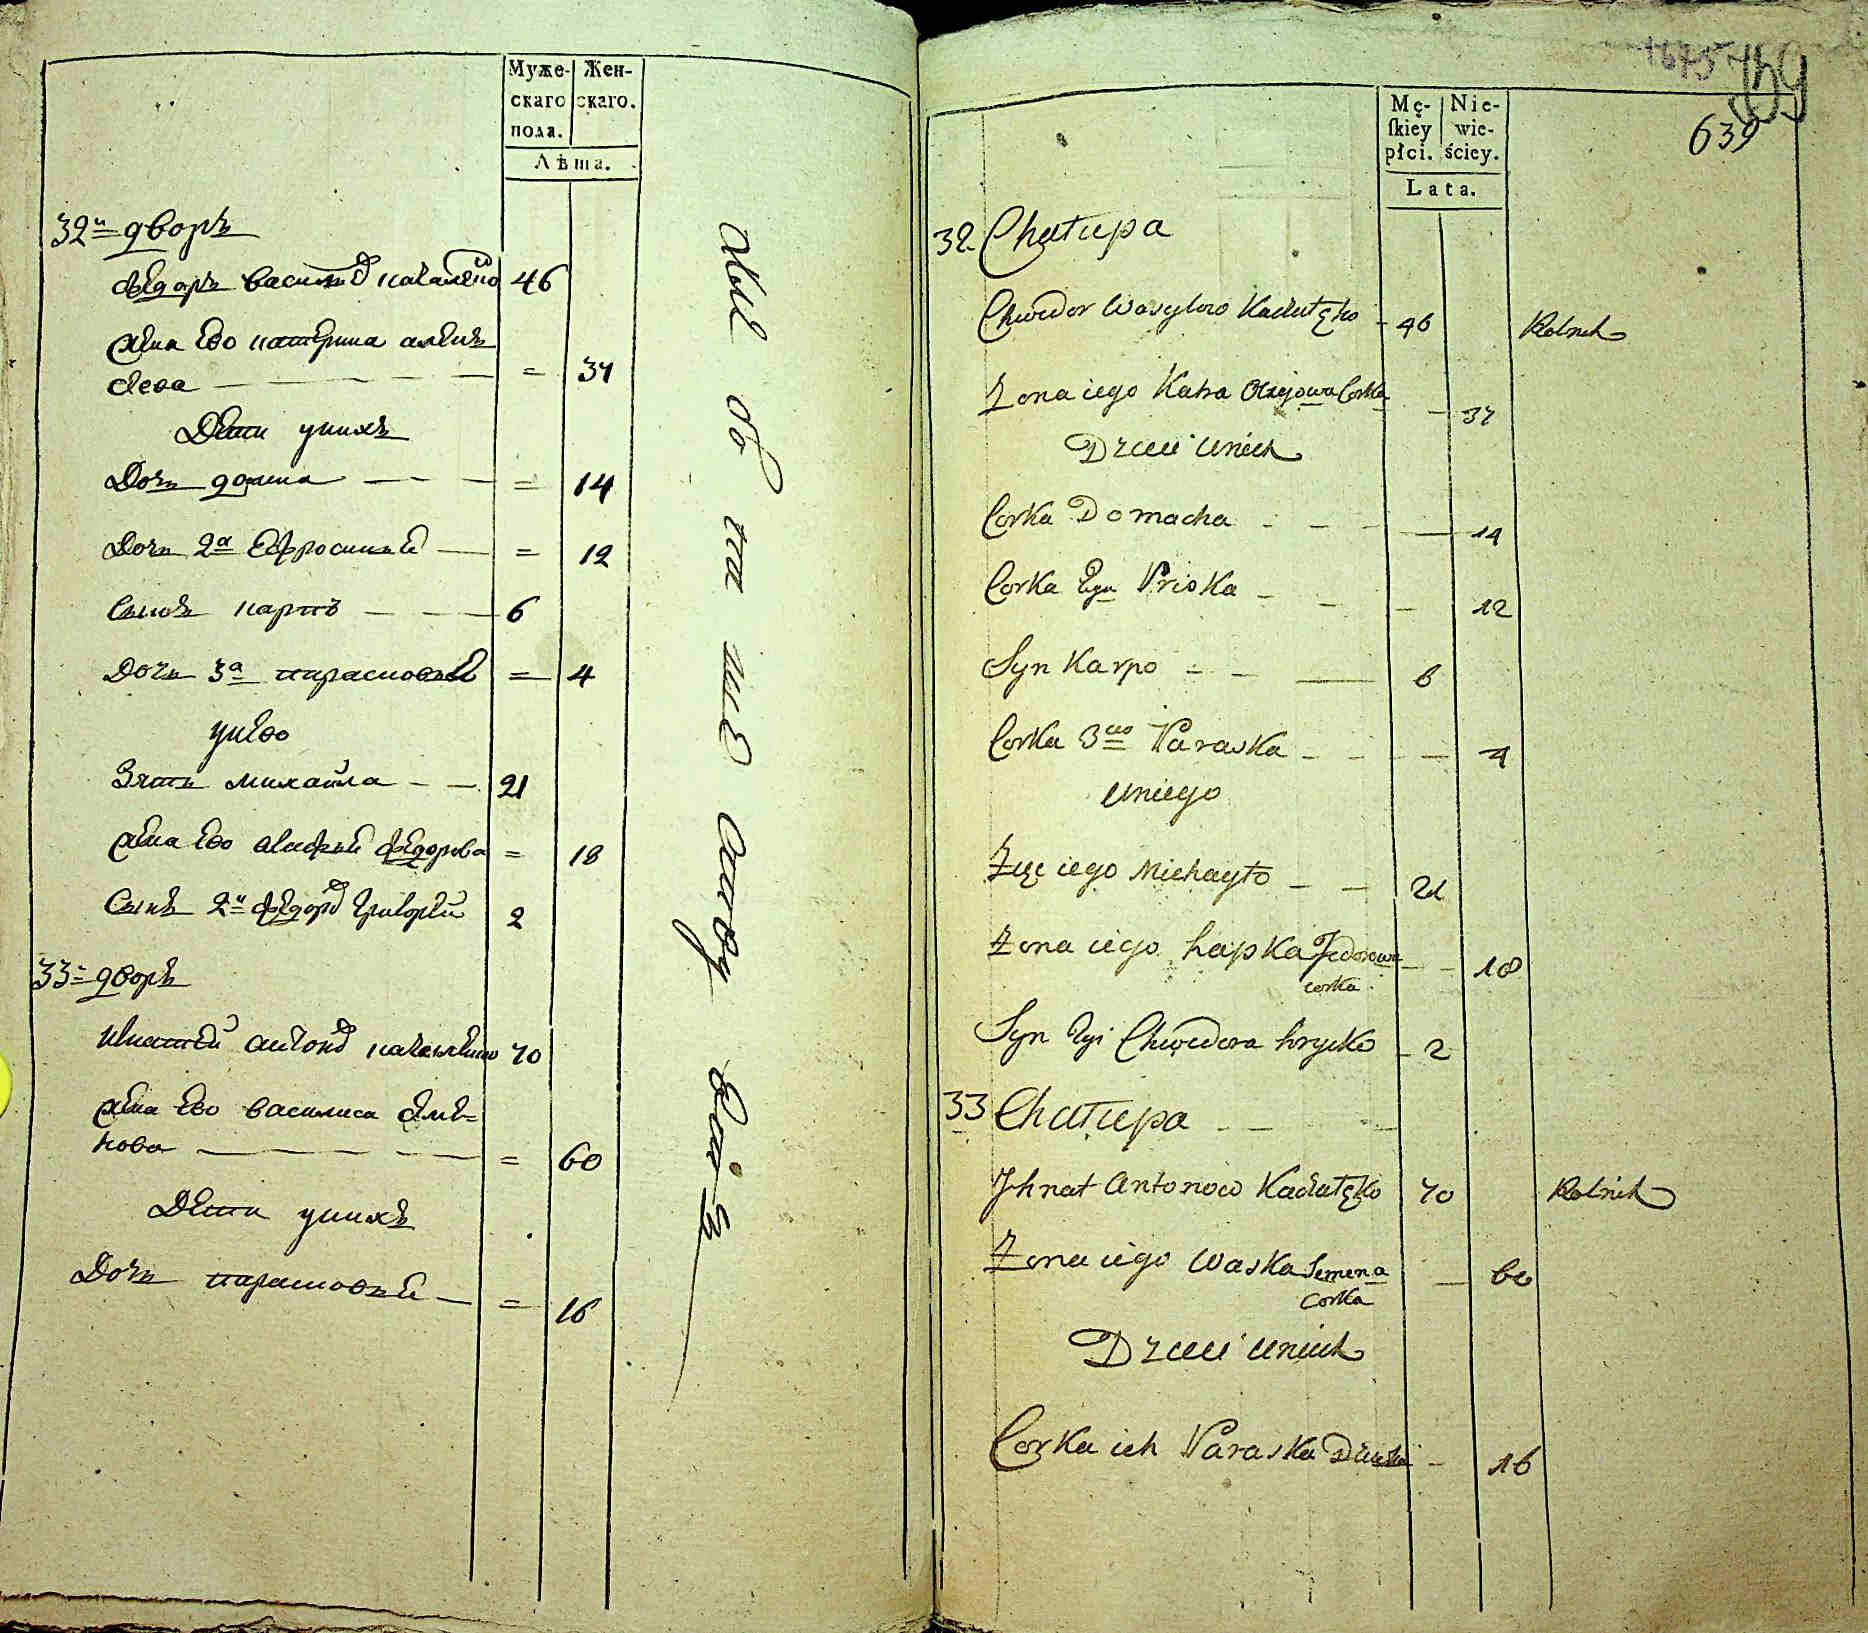 Муже- Жен-
скаго скаго.
пола.
Лѣта.
32й дворъ
федоръ василиев 46
жена ево катерина алек
сѣева = 37
Дети уиихъ
Дочь домна = 14
Дочь 2а Ефросиния = 12
Сынъ карпъ 6
Дочь 3а парасковия = 4
унево
Зять михайла 21
жена ево агафия федорова = 18
Сынъ 2й федора григорей 2
33й дворъ
игнатей антонов 70
жена ево василиса семе-
нова = 60
Дети унихъ
Дочь парасковия = 16
Mę- Nie-
ſkiey wie-
płci. ściey.
Lata.
639
32 Chałupa
Chwedor Wasylow Kaczałęko 46 Rolnik
Zona iego Katra Olexjowa Corka 37
Dzieci unich
Corka Domacha 14
Corka 2ga Priska 12
Syn Karpo 6
Corka 3cia Paraska 4
uniego
Zięc iego Michayło 21
Zona iego hapka Fedorowa
corka 18
Syn 2gi Chwedora hrycko 2
33 Chałupa
Jhnat Antonow Kaczałęko 70 Rolnik
Zona iego Waska Semena
corka 60
Dzieci unich
Corka ich Paraska 16